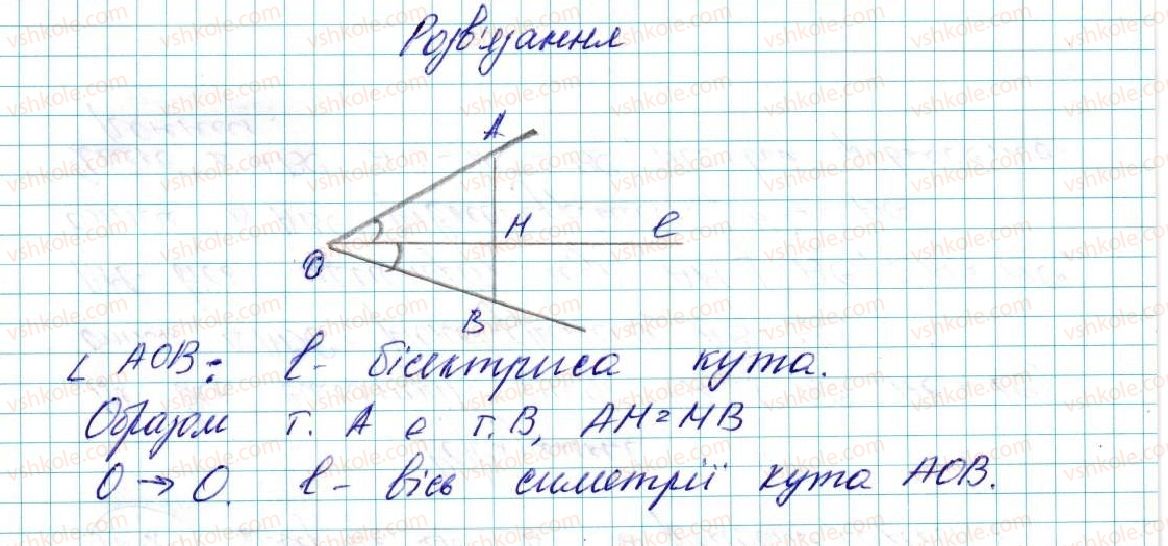 Розв'язання
A
M
l
O
B
∠ AOB: l - бісектриса кута.
Образом т. A є т. B, AM = MB
O → O. l - вісь симетрії кута AOB.